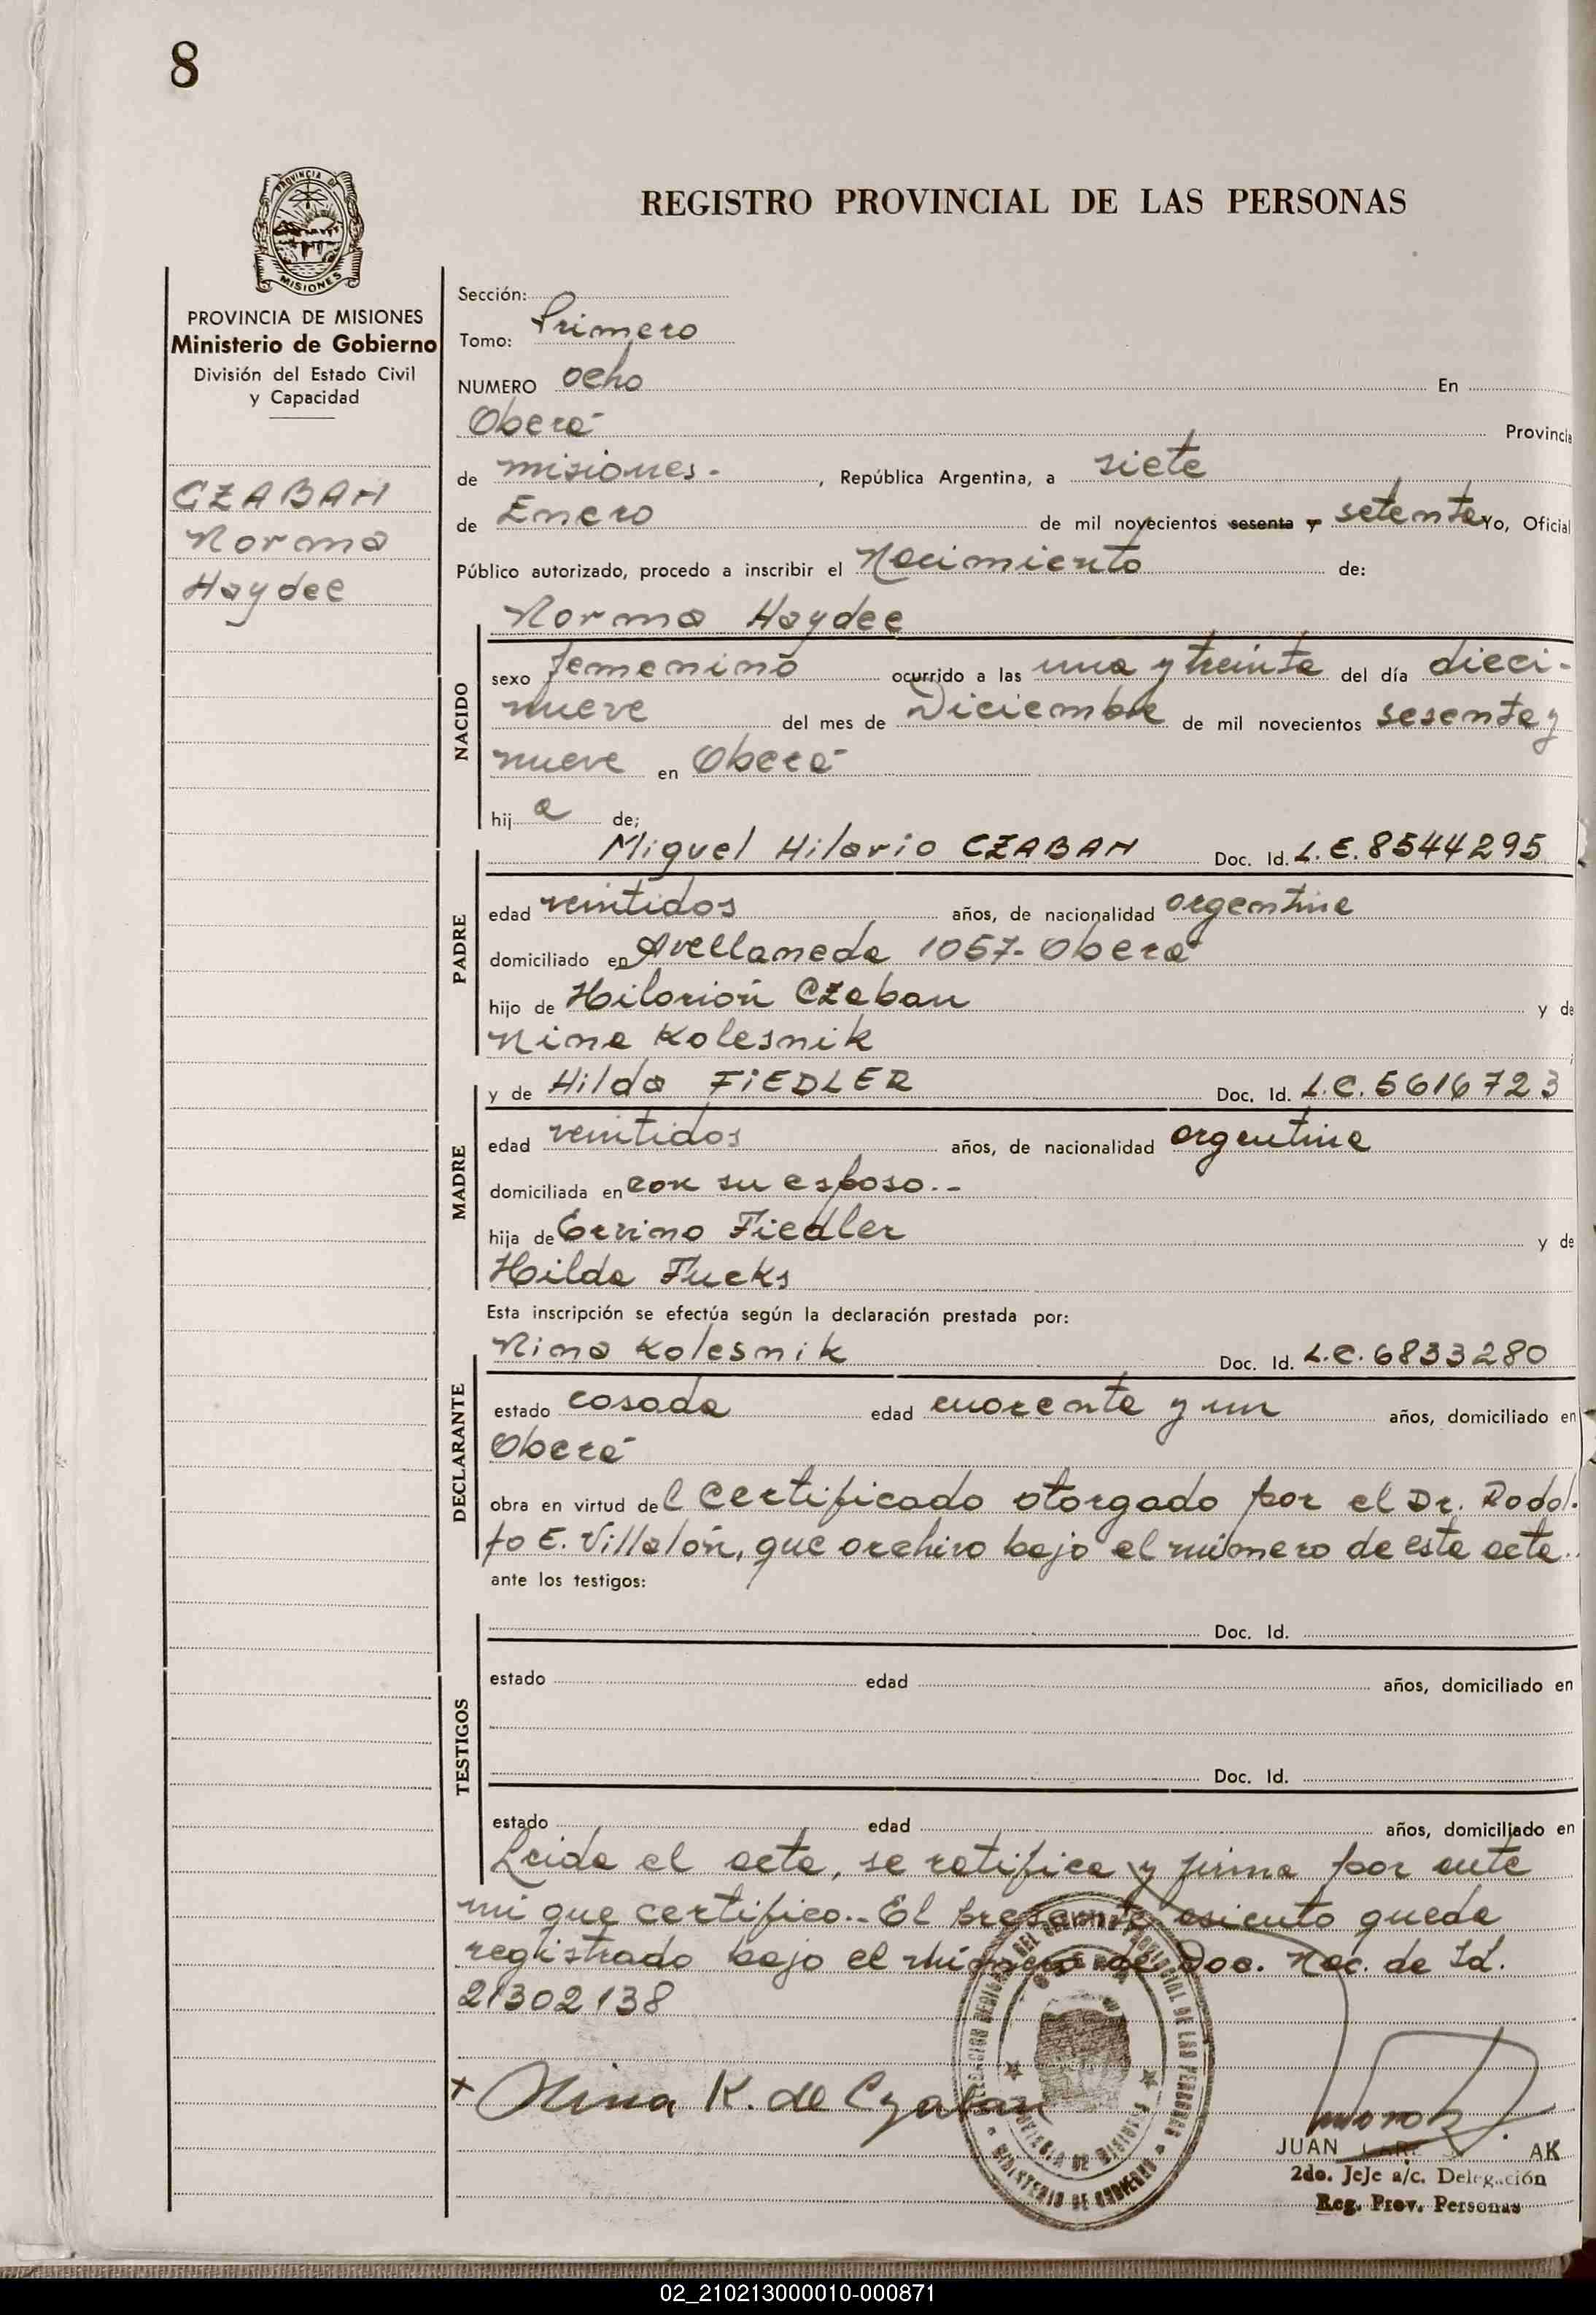 8
PROVINCIA DE
MISIONES
REGISTRO PROVINCIAL DE LAS PERSONAS
PROVINCIA DE MISIONES
Ministerio de Gobierno
División del Estado Civil
y Capacidad
CZABAN
Norma
Haydee
Sección:
Tomo: Primero
NUMERO ocho En
Oberá Provincia
de misiones.- , República Argentina, a siete
de Enero de mil novecientos sesenta y setenta Yo, Oficial
Público autorizado, procedo a inscribir el Nacimiento de:
Norma Haydee
NACIDO
sexo femenino ocurrido a las una y treinta del día dieci-
nueve del mes de Diciembre de mil novecientos sesenta y
nueve en Oberá
hij a de;
PADRE
Miguel Hilario CZABAN Doc. Id. L.E. 8544295
edad veintidos años, de nacionalidad argentina
domiciliado en Avellaneda 1057- Oberá
hijo de Hilarión Czaban y de
Nina Kolesnik
MADRE
y de Hilda FiEDLER Doc. Id. L.C. 5616723
edad veintidos años, de nacionalidad argentina
domiciliada en con su esposo.-
hija de Ervino Fiedler y de
Hilda Fucks
Esta inscripción se efectúa según la declaración prestada por:
DECLARANTE
Nina Kolesnik Doc. Id. L.C. 6833280
estado casada edad cuarenta y un años, domiciliado en
Oberá
obra en virtud del certificado otorgado por el Dr. Rodol-
fo E. Villalón, que archivo bajo el número de esta acta.
ante los testigos:
TESTIGOS
Doc. Id.
estado edad años, domiciliado en
Doc. Id.
estado edad años, domiciliado en
Leida el acta, se ratifica y firma por ante
mi que certifico.- El presente asiento queda
registrado bajo el número de Doc. Nac. de Id.
21302138
x Nina K. de Czaban
PROVINCIAL DE LAS PERSONAS
MINISTERIO DE GOBIERNO
JUAN AK
2do. Jefe a/c. Delegación
Reg. Prov. Personas
02_210213000010-000871